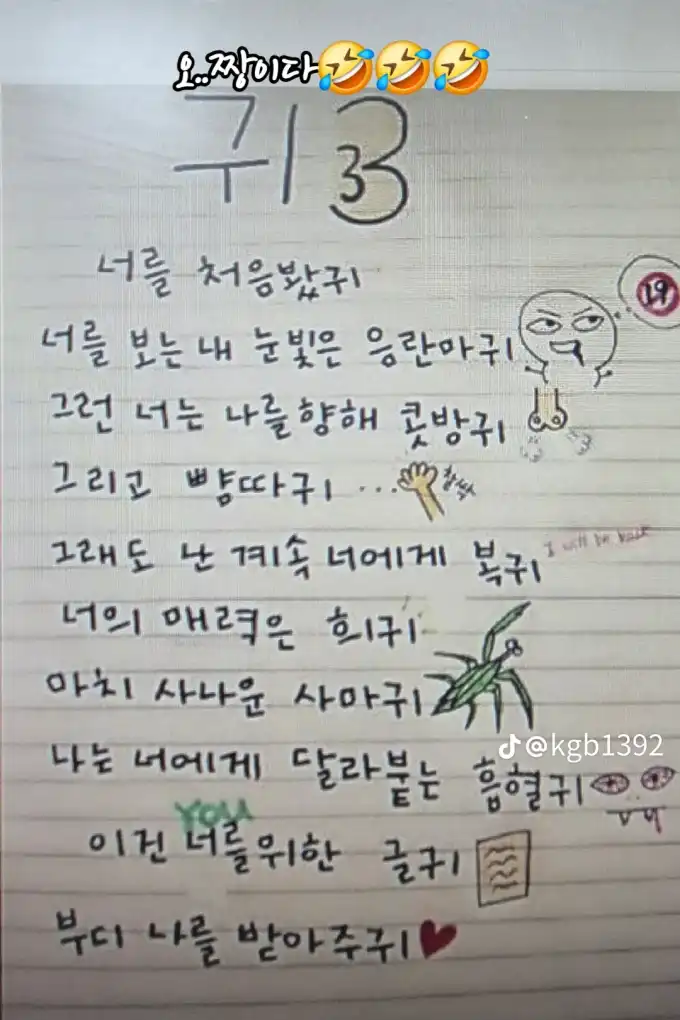 오..짱이다🤣🤣🤣
귀
너를 처음봤귀
19
너를 보는 내 눈빛은 응란마귀
그런 너는 나를향해 콧방귀
그리고 뺨따귀...
찰싹
그래도 난 계속 너에게 복귀
I will be back
너의 매력은 희귀
마치 사나운 사마귀
@kgb1392
나는 너에게 달라붙는 흡혈귀
YOU
이건 너를위한 글귀
부디 나를 받아주귀♥